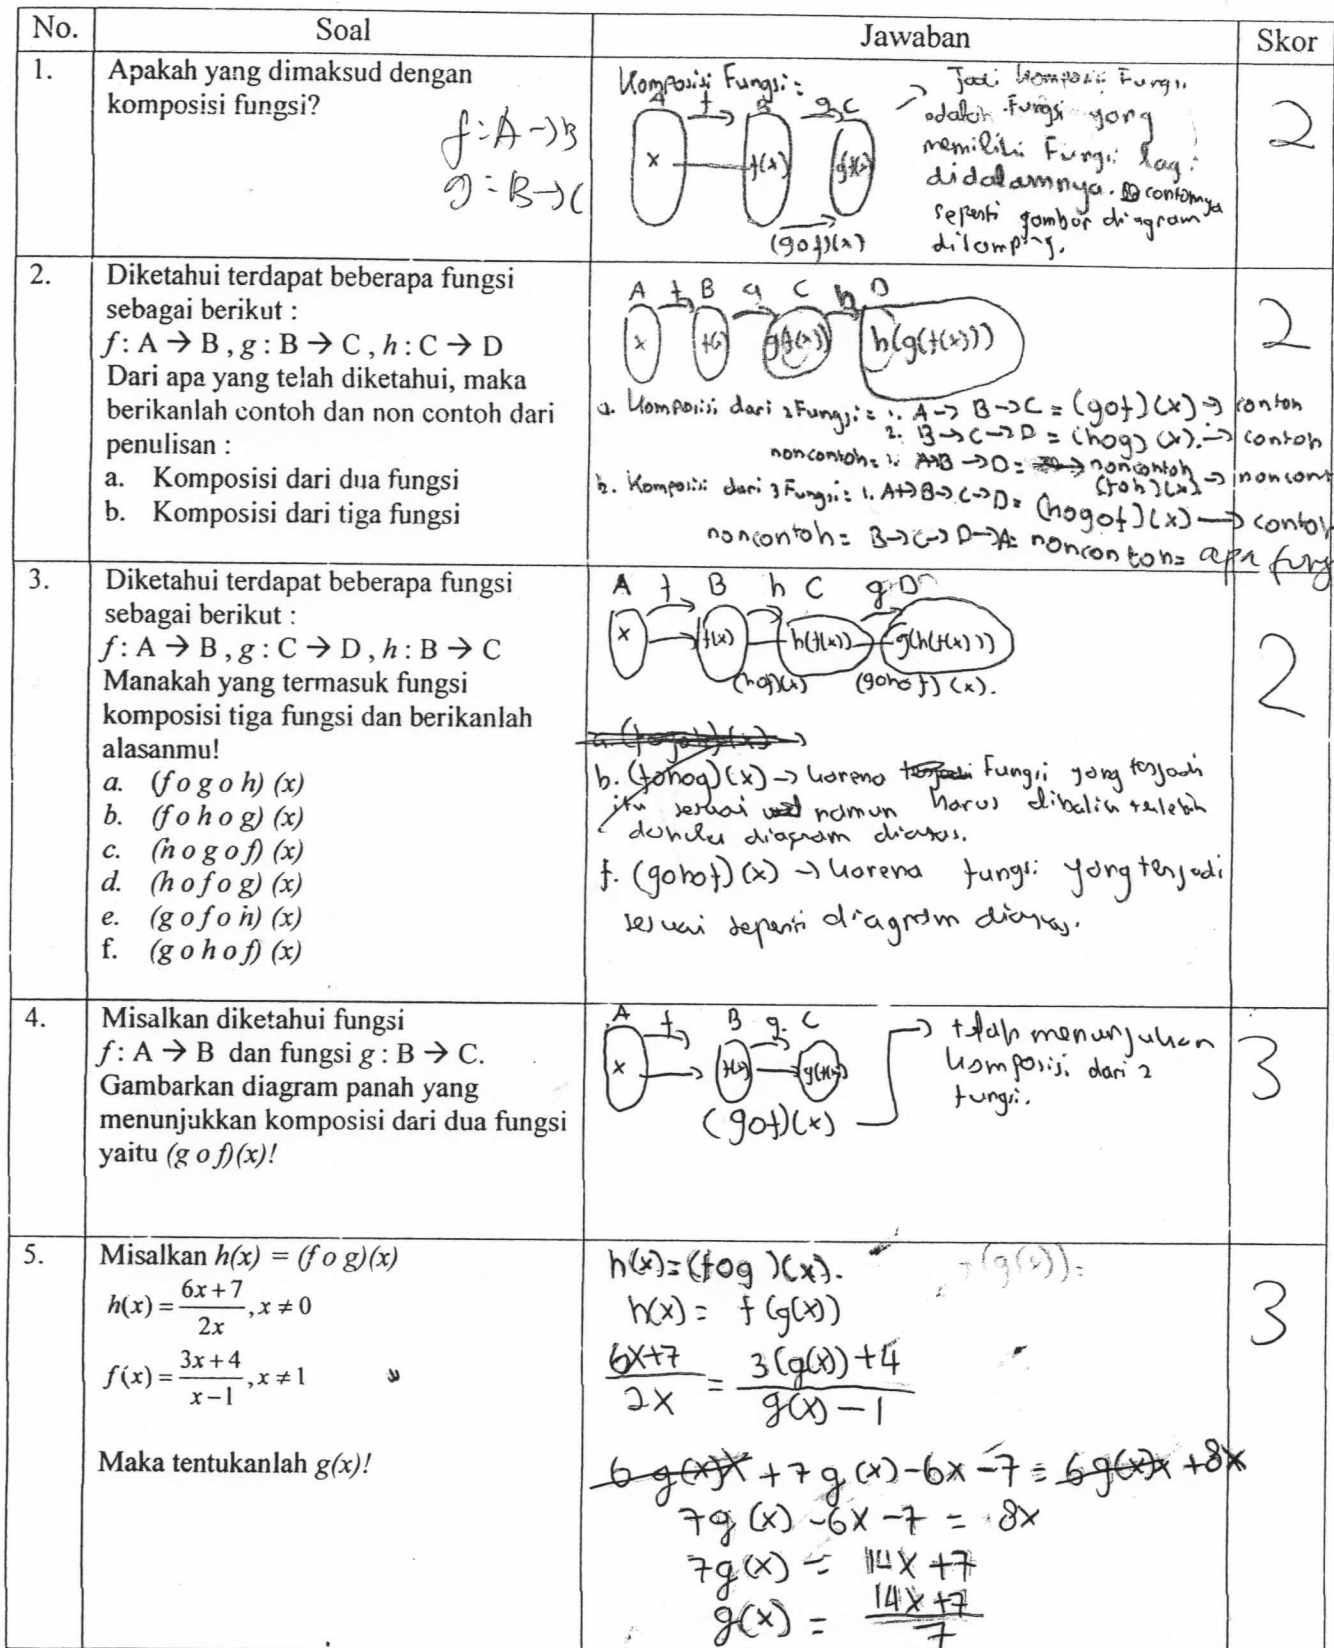 No. Soal Jawaban Skor
1. Apakah yang dimaksud dengan
komposisi fungsi?
f : A → B
g : B → C
Komposisi Fungsi :
A f B g C
x f(x) g(f(x))
(gof)(x)
→ Jadi komposisi Fungsi
adalah Fungsi yang
memiliki Fungsi lagi
didalamnya. contohnya
seperti gambar diagram
disamping.
2
2. Diketahui terdapat beberapa fungsi
sebagai berikut :
f : A → B , g : B → C , h : C → D
Dari apa yang telah diketahui, maka
berikanlah contoh dan non contoh dari
penulisan :
a. Komposisi dari dua fungsi
b. Komposisi dari tiga fungsi
A f B g C h D
x f(x) g(f(x)) h(g(f(x)))
a. Komposisi dari 2 Fungsi = 1. A → B → C = (gof)(x) → contoh
2. B → C → D = (hog)(x). → contoh
noncontoh = 1. A → B → D = noncontoh
(foh)(x) → noncont
b. Komposisi dari 3 Fungsi = 1. A → B → C → D = (hogof)(x) → contoh
noncontoh = B → C → D → A = noncontoh = apa fung
2
3. Diketahui terdapat beberapa fungsi
sebagai berikut :
f : A → B , g : C → D , h : B → C
Manakah yang termasuk fungsi
komposisi tiga fungsi dan berikanlah
alasanmu!
a. (f o g o h) (x)
b. (f o h o g) (x)
c. (h o g o f) (x)
d. (h o f o g) (x)
e. (g o f o h) (x)
f. (g o h o f) (x)
A f B h C g D
x f(x) h(f(x)) g(h(f(x)))
(hof)(x) (gohof)(x).
a. (fogoh)(x) →
b. (fohog)(x) → karena Fungsi yang terjadi
itu sesuai namun harus dibalik terlebih
dahulu diagram diatas.
f. (gohof)(x) → karena fungsi yang terjadi
sesuai seperti diagram diatas.
2
4. Misalkan diketahui fungsi
f : A → B dan fungsi g : B → C.
Gambarkan diagram panah yang
menunjukkan komposisi dari dua fungsi
yaitu (g o f)(x)!
A f B g C
x f(x) g(f(x))
(gof)(x)
→ telah menunjukan
komposisi dari 2
fungsi.
3
5. Misalkan h(x) = (f o g)(x)
h(x) = 6x+7 / 2x , x ≠ 0
f(x) = 3x+4 / x−1 , x ≠ 1
Maka tentukanlah g(x)!
h(x) = (fog)(x).
(g(x)) =
h(x) = f(g(x))
6x+7 / 2x = 3(g(x))+4 / g(x) − 1
6 g(x)x + 7g(x) − 6x − 7 = 6g(x)x + 8x
7g(x) − 6x − 7 = 8x
7g(x) = 14x + 7
g(x) = 14x + 7 / 7
3